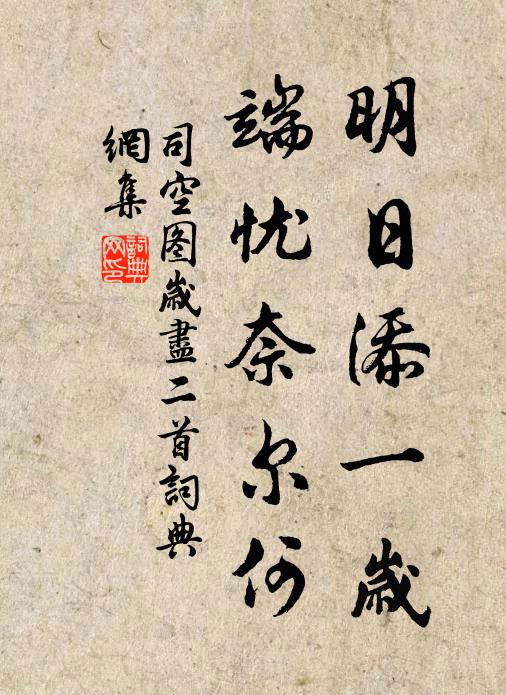 明日添一歲
端忧奈尔何
司空图歲盡二首詞典
網集
詞典
网印